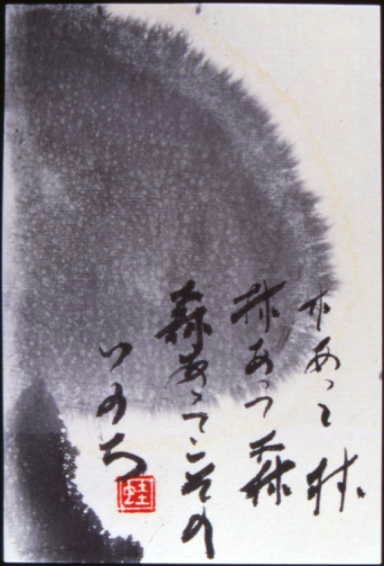 木あって林
林あって森
森あってこその
いのち
蛙